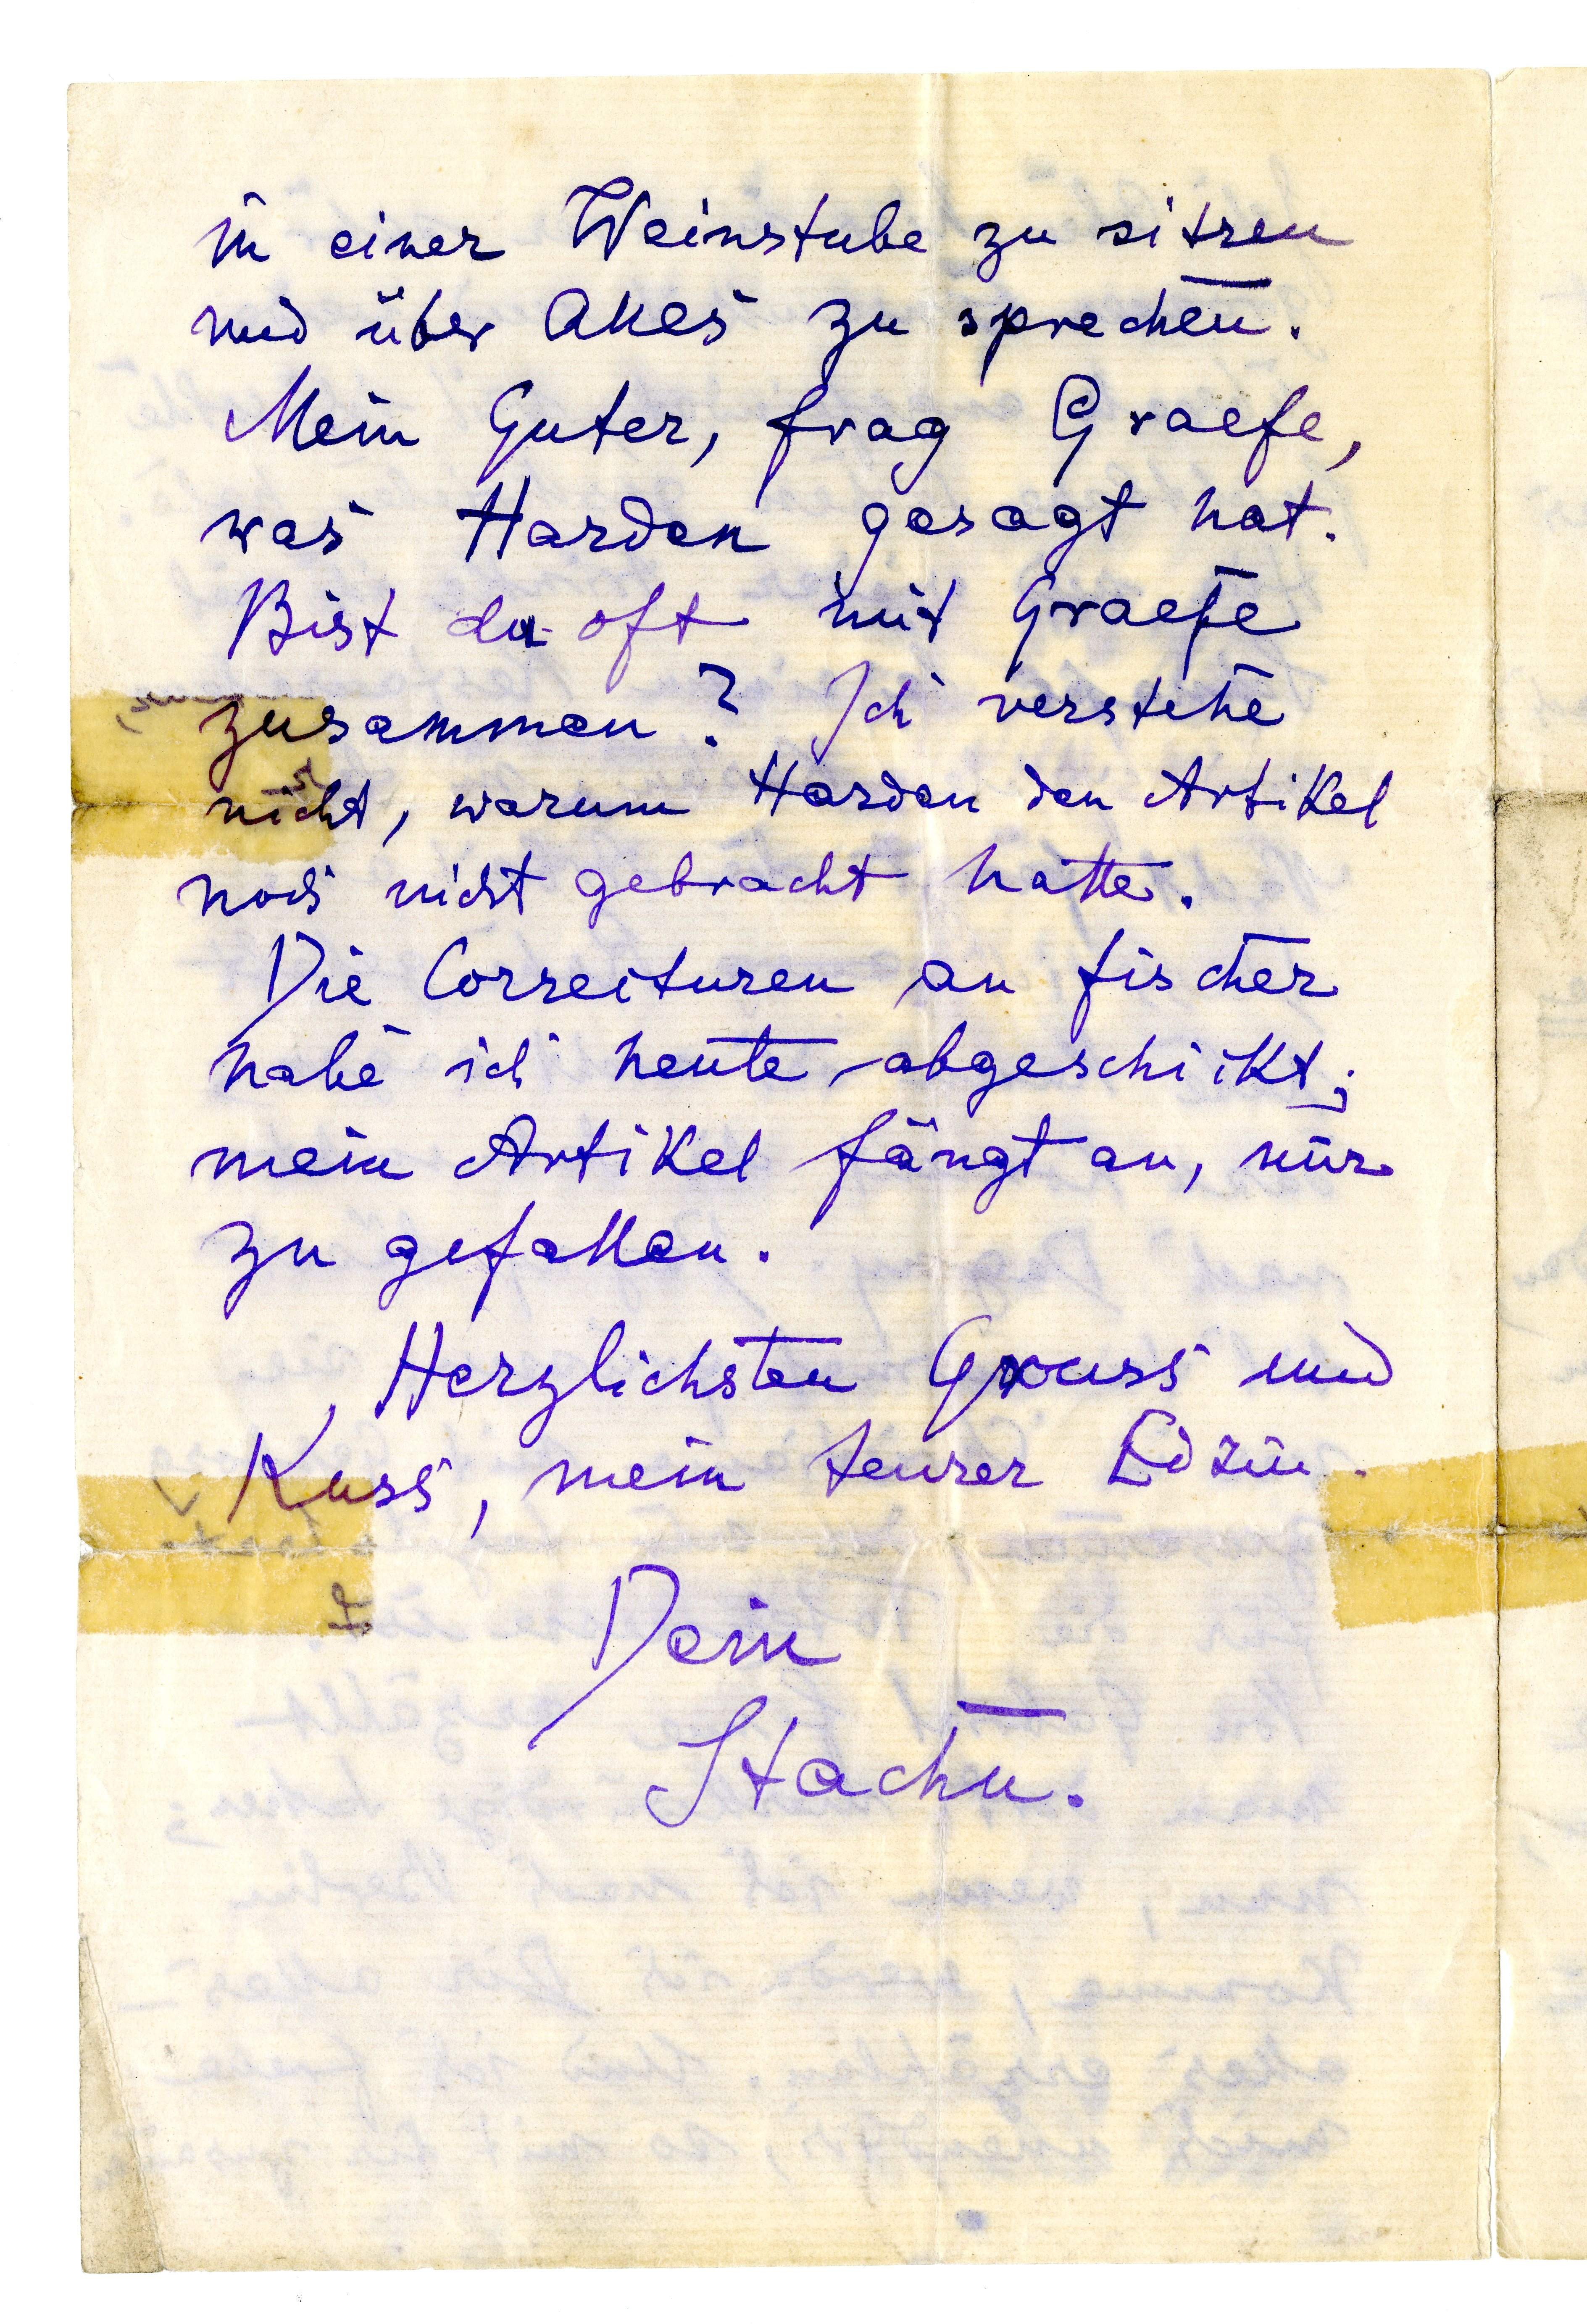 in einer Weinstube zu sitzen
und über Alles zu sprechen.
Mein Guter, frag Graefe,
was Harden gesagt hat.
Bist du oft mit Graefe
zusammen? Ich verstehe
nicht, warum Harden den Artikel
noch nicht gebracht hatte.
Die Correcturen an Fischer
habe ich heute abgeschickt;
mein Artikel fängt an, mir
zu gefallen.
Herzlichsten Gruss und
Kuss, mein teurer Edzin.
Dein
Stachu.